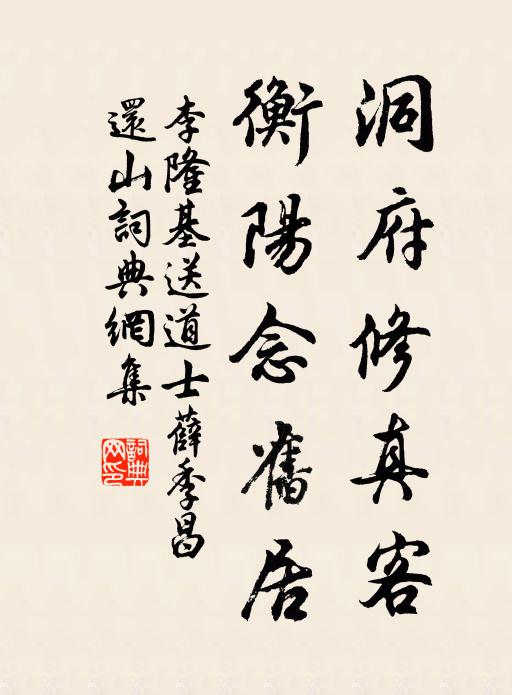 洞府修真客
衡陽念舊居
李隆基送道士薛季昌
還山詞典網集
詞典網印